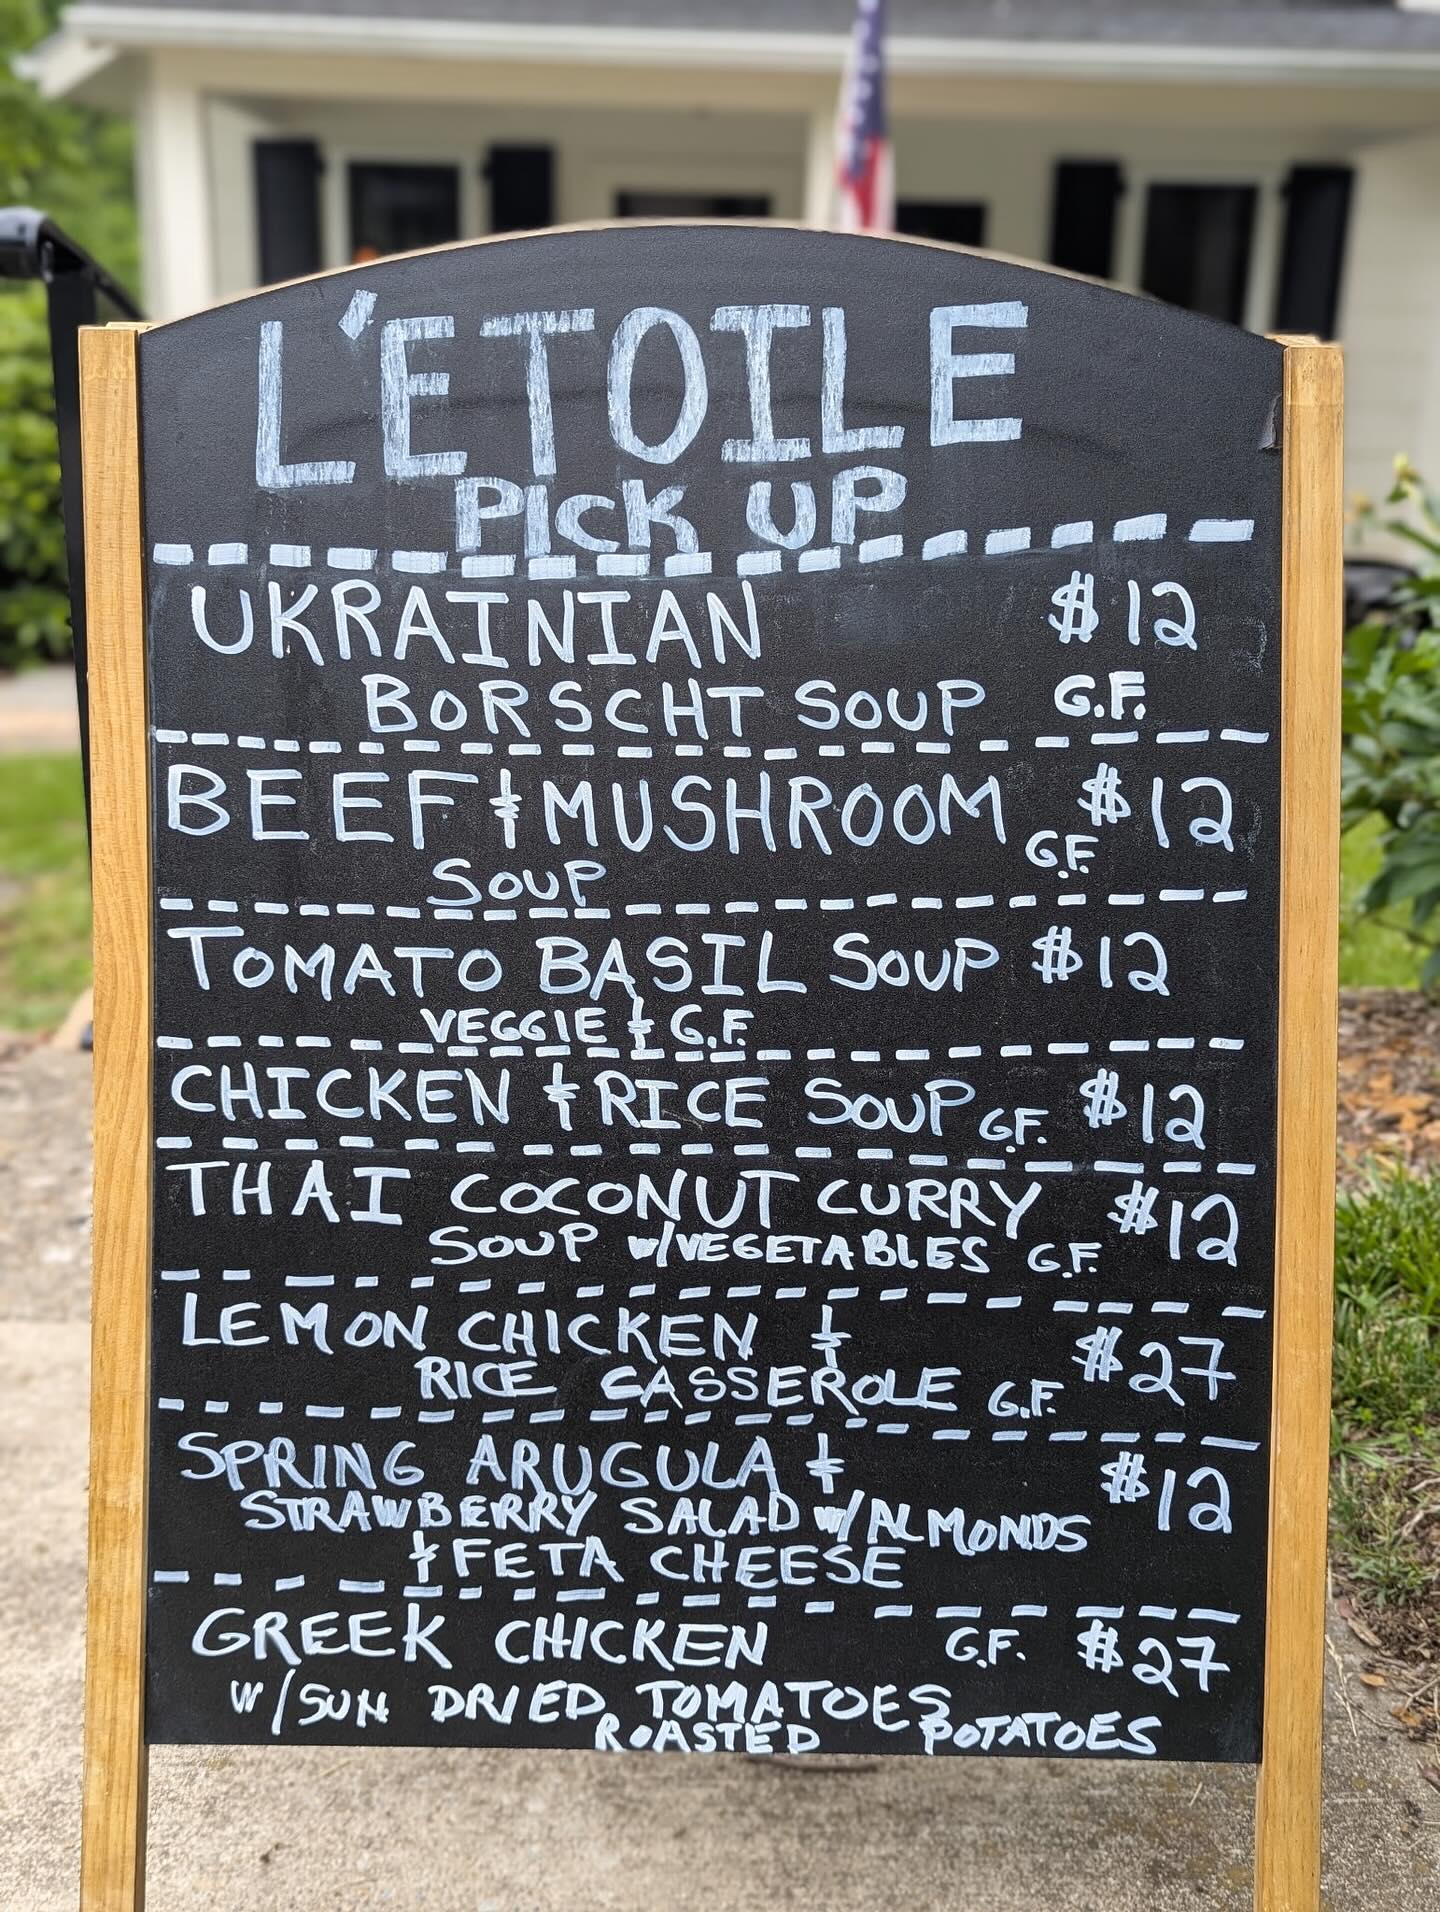 L'ETOILE
PICK UP
UKRAINIAN $12
BORSCHT SOUP G.F.
BEEF & MUSHROOM $12
SOUP G.F.
TOMATO BASIL SOUP $12
VEGGIE & G.F.
CHICKEN & RICE SOUP G.F. $12
THAI COCONUT CURRY $12
SOUP W/VEGETABLES G.F.
LEMON CHICKEN & $27
RICE CASSEROLE G.F.
SPRING ARUGULA & $12
STRAWBERRY SALAD W/ALMONDS
& FETA CHEESE
GREEK CHICKEN G.F. $27
W/SUN DRIED TOMATOES
ROASTED POTATOES